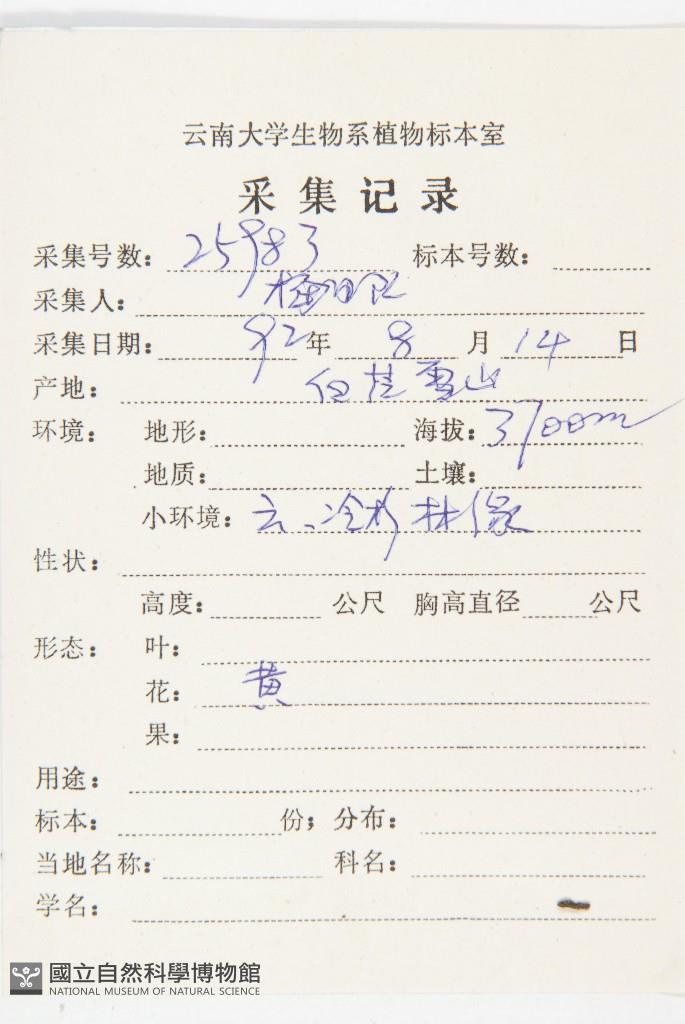 云南大学生物系植物标本室
采集记录
采集号数: 25983 标本号数:
采集人:
采集日期: 92年 8 月 14 日
产地: 白茫雪山
环境: 地形: 海拔: 3700m
地质: 土壤:
小环境: 云、冷杉林缘
性状:
高度: 公尺 胸高直径 公尺
形态: 叶:
花: 黄
果:
用途:
标本: 份; 分布:
当地名称: 科名:
学名:
國立自然科學博物館
NATIONAL MUSEUM OF NATURAL SCIENCE